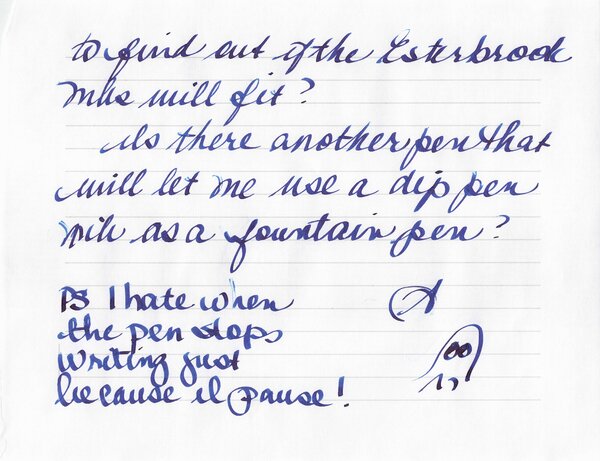 to find out if the Esterbrook
nibs will fit?
Is there another pen that
will let me use a dip pen
nib as a fountain pen?
PS I hate when
the pen stops
writing just
because I pause!
A